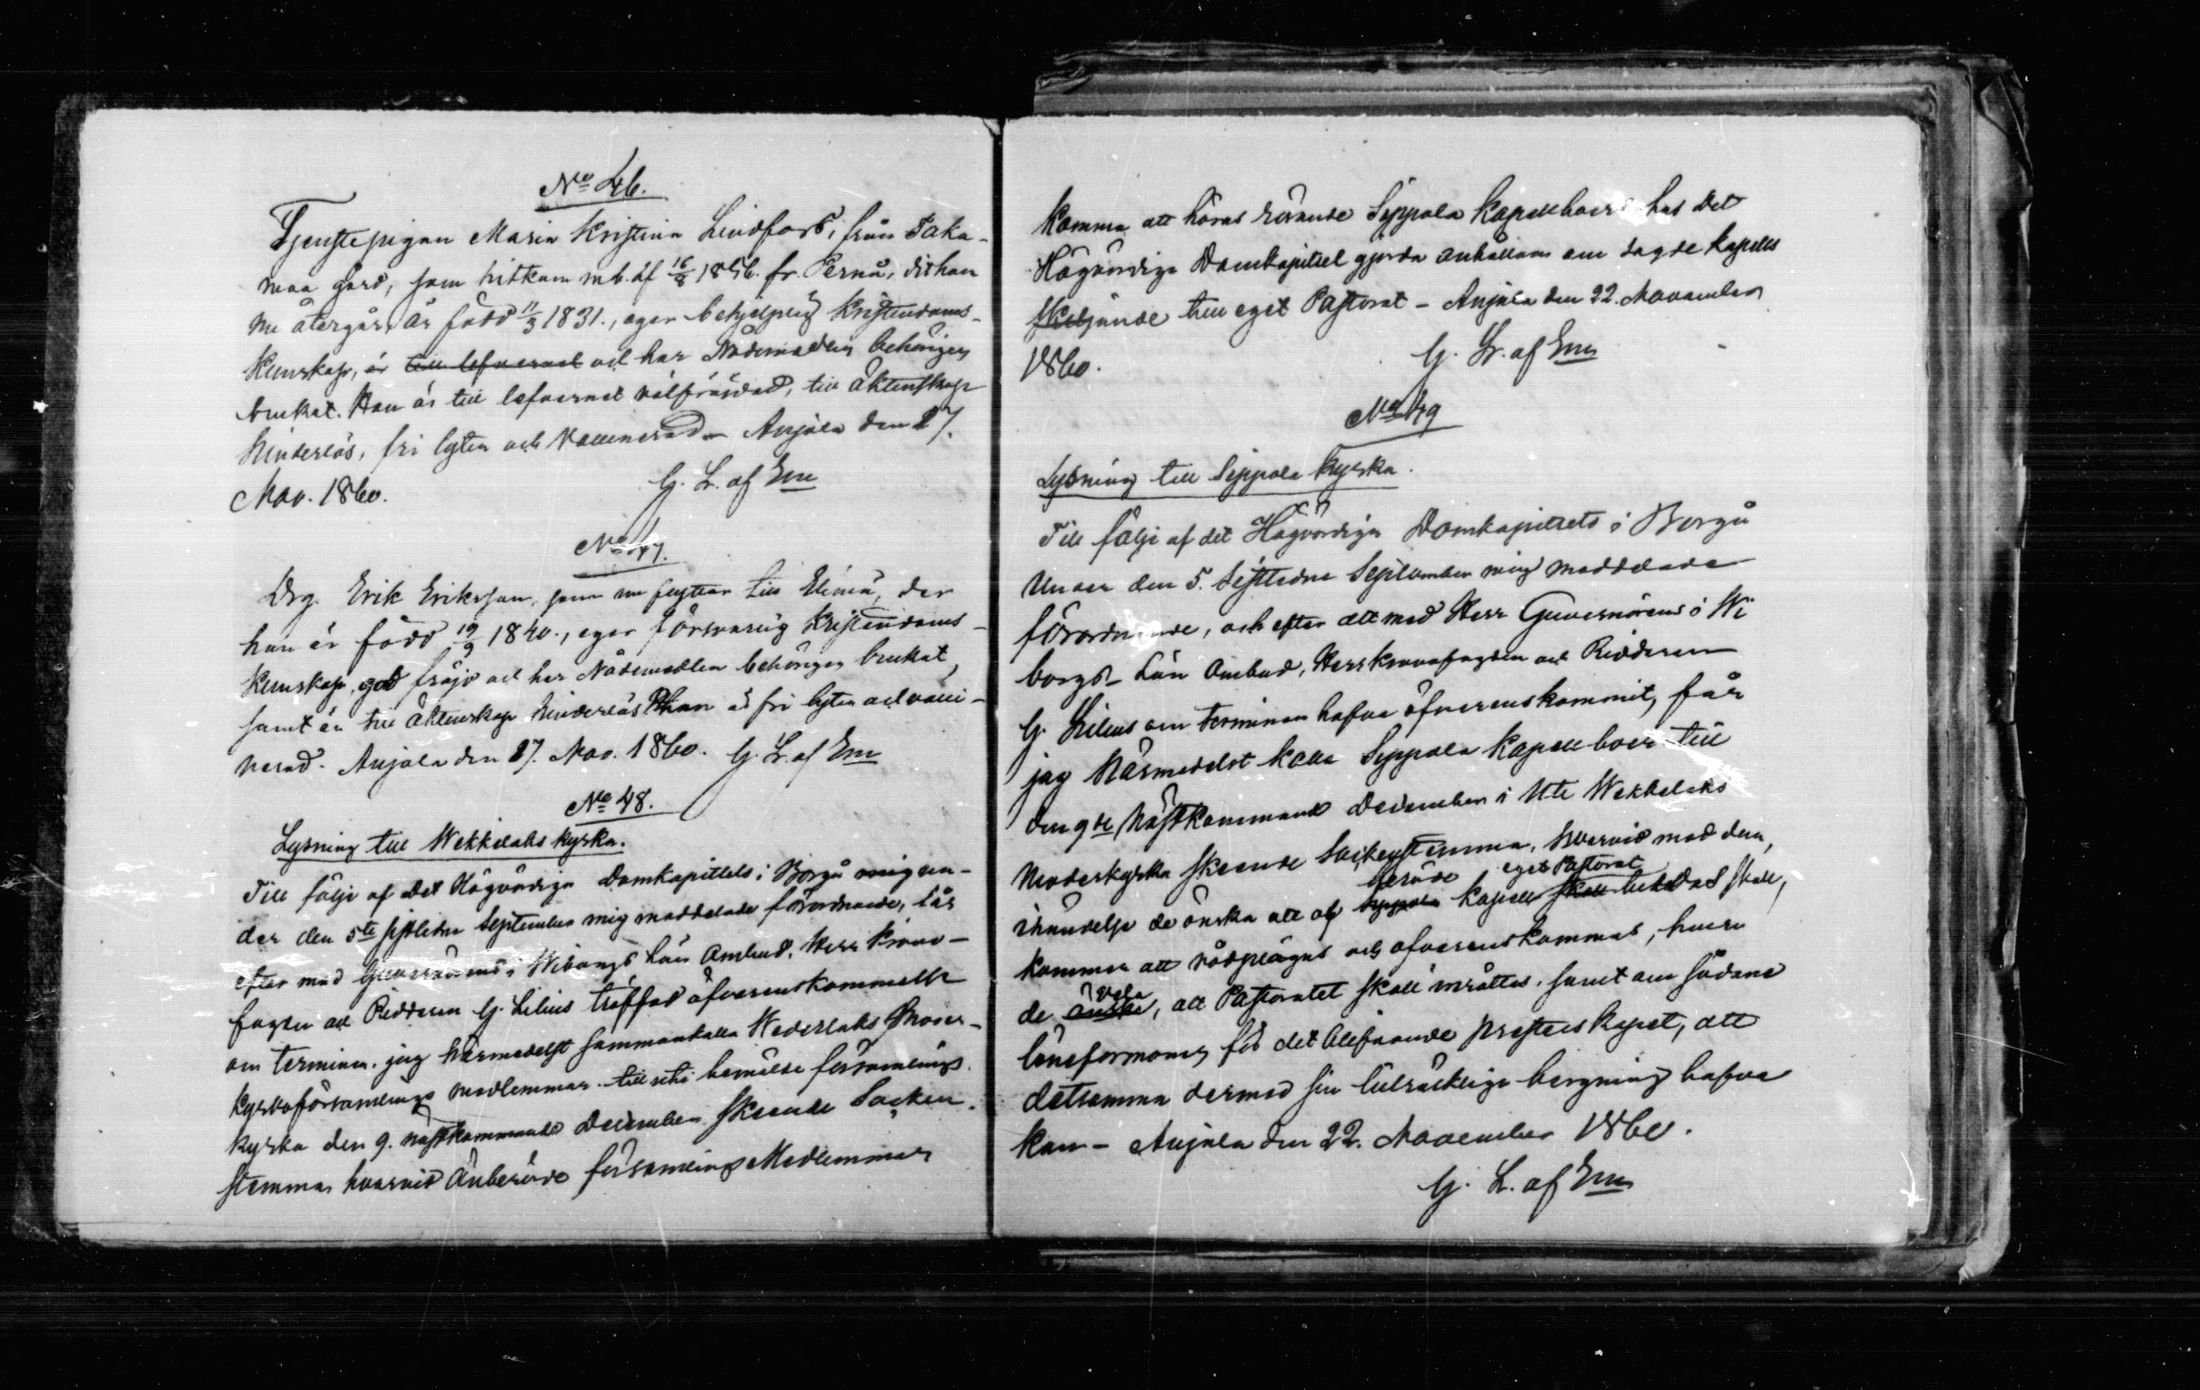 No 46.
Tjenstepigan Maria Kristina Lindfors, från Taka-
maa gård, som hitkom m. b. af 16/8 1856. fr. Pernå, dit hon
nu återgår, är född 11/3 1831., eger behjelplig Kristendoms-
kunskap, är till lefvernet och har Nådemedlen behörigen
brukat. Hon är till lefvernet välfräjdad, till äktenskap
hinderlös, fri lyten och vaccinerad – Anjala den 17.
Nov. 1860. G. L. af Em
No 47.
Drg. Erik Eriksson, som nu flyttar till Elimä, der
han är född 19/9 1840., eger försvarlig Kristendoms-
kunskap, god fräjd och har Nådemedlen behörigen brukat,
samt är till äktenskap hinderlös han är fri lyten och vacci-
nerad. Anjala den 17. Nov. 1860. G. L. af Em
No 48.
Lysning till Wekkelaks kyrka.
Till följe af det Högvördiga Domkapitlets i Borgå mig un-
der den 5te sistledne September mig meddelade förordnande, får
efter med Guvernörens i Wiborgs Län Ombud, Herr Krono-
fogden och Riddaren G. Lilius träffad öfverenskommelse
om terminen, jag härmedelst sammankalla Wederlaks Moder-
kyrkoförsamlings medlemmar till uti bemälde församlings
kyrka den 9. nästkommande December skeende Socken-
stemma, hvarvid Anberörde församlings Medlemmar
komma att höras rörande Sippola kapellboers hos Det
Högvördiga Domkapitlet gjorda anhållan om sagde kapells
skeljande till eget Pastorat – Anjala den 22. November
1860. G. L. af Em
No 49
Lysning till Sippola kyrka.
Till följe af det Högvördiga Domkapitlets i Borgå
under den 5. sistledne September mig meddelade
förordnande, och efter att med Herr Guvernörens i Wi
borgs Län Ombud, Herr kronofogden och Riddaren
G. Lilius om terminen hafva öfverenskommit, får
jag härmedelst kalla Sippola kapellboer till
den 9de nästkommande December i Uti Wekkelaks
Moderkyrka skeende Sockenstemma, hvarvid med dem,
berörde eget Pastorat
i händelse de önska att af Sippola kapell skall bildas skall,
komma att rådplägas och öfverenskommas, huru
vela
de önska, att Pastoratet skall inrättas, samt om sådane
löneförmoner för det blifvande Presterskapet, att
detsamma dermed sin tillräckliga bergning hafva
kan – Anjala den 22. November 1860.
G. L. af Em